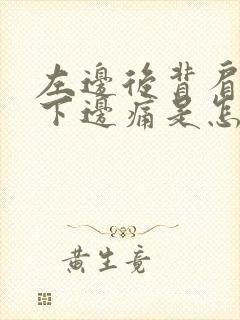 左邊後背肩
下邊痛是怎
黃生竟